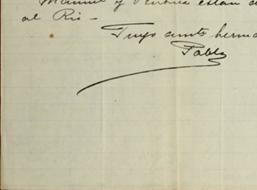 Manuel y Ventura estan
al Rio –
Tuyo amte herma
Pablo